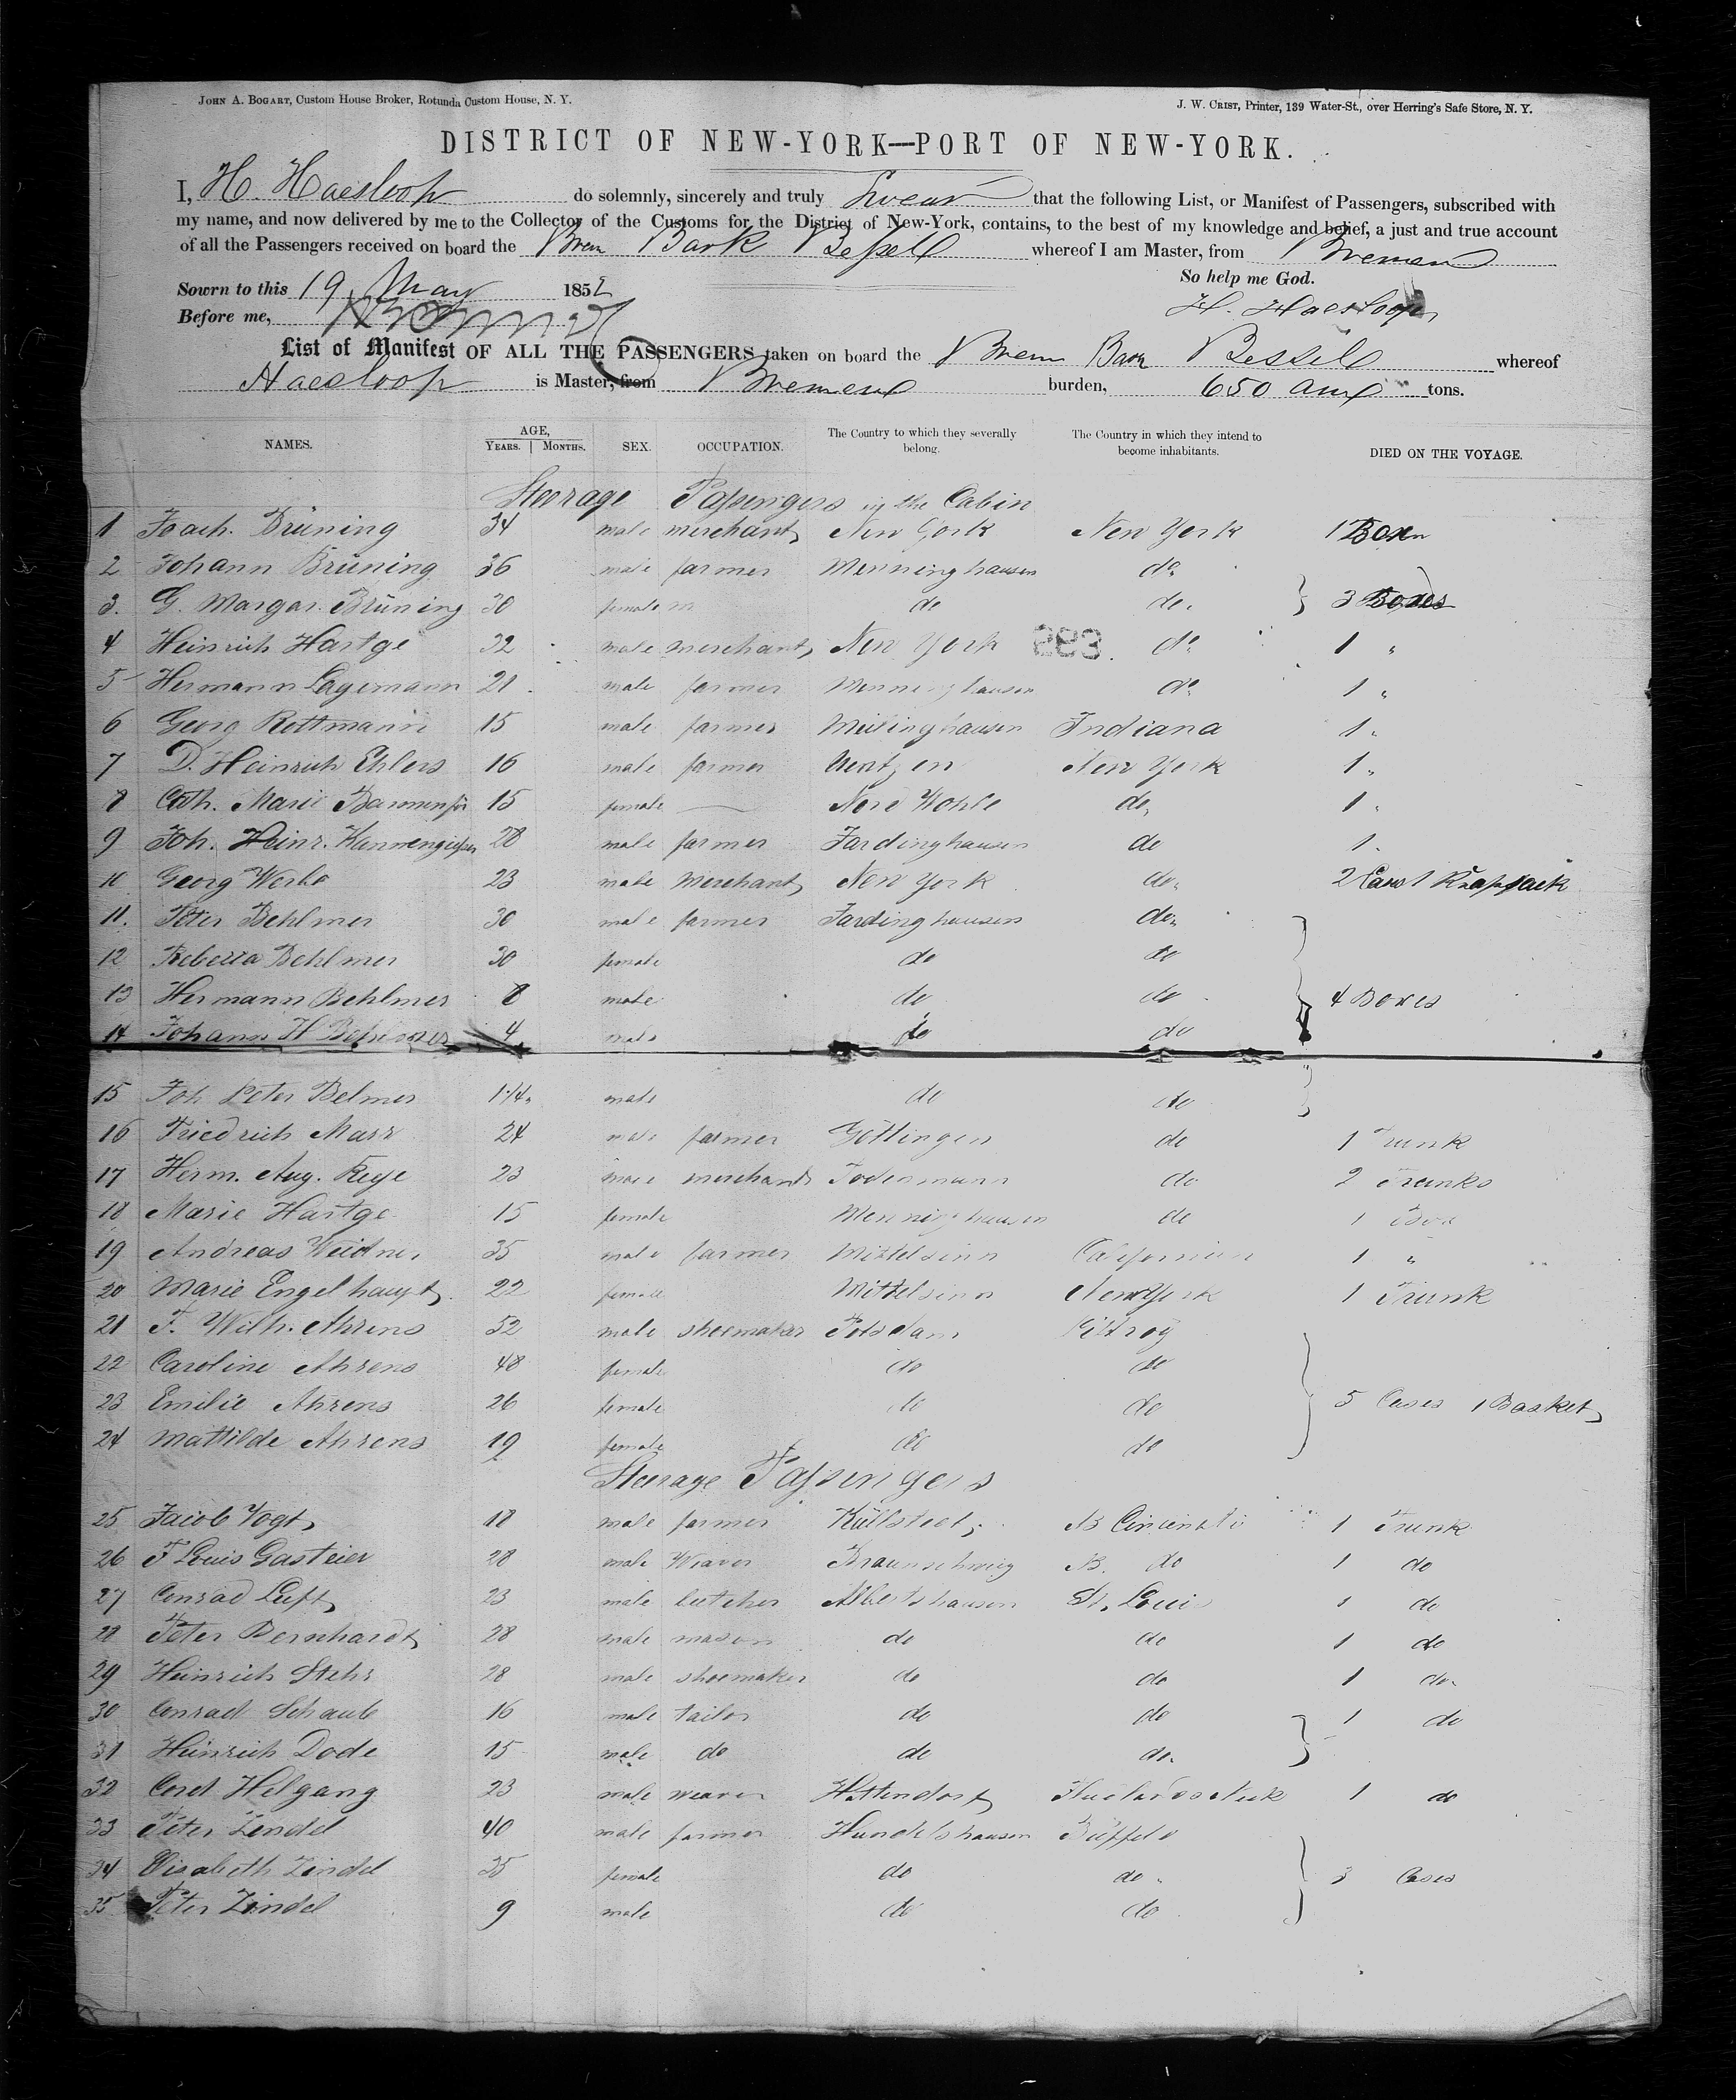 JOHN A. BOGART, Custom House Broker, Rotunda Custom House, N. Y. J. W. CRIST, Printer, 139 Water-St., over Herring's Safe Store, N. Y.
DISTRICT OF NEW-YORK—PORT OF NEW-YORK.
I, H. Haesloop do solemnly, sincerely and truly Swear that the following List, or Manifest of Passengers, subscribed with
my name, and now delivered by me to the Collector of the Customs for the District of New-York, contains, to the best of my knowledge and belief, a just and true account
of all the Passengers received on board the Brem Bark Bessel whereof I am Master, from Bremen
So help me God.
Sowrn to this 19 May 1852
H. Haesloop
Before me,
List of Manifest OF ALL THE PASSENGERS taken on board the Brem Bark Bessel whereof
Haesloop is Master, from Bremen burden, 650 tons.
NAMES. AGE, YEARS. MONTHS. SEX. OCCUPATION. The Country to which they severally belong. The Country in which they intend to become inhabitants. DIED ON THE VOYAGE.
Steerage Passengers in the Cabin
1 Joach. Brüning 34 male merchant New York New York 1 Box
2 Johann Brüning 36 male farmer Menninghausen do
3. G. Margar. Brüning 30 female do do. 3 Boxes
4 Heinrich Hartge 32 male merchant New York 283 do 1 "
5 Hermann Lagemann 21 male farmer Menninghausen do 1 "
6 Georg Rottmann 15 male farmer Indiana 1 "
7 D. Heinrich Ehlers 16 male farmer New York 1 "
8 Cath. Marie 15 female — Nord Wohle do, 1 "
9 Joh. Heinr. Kannengiesser 28 male farmer Fardinghausen do 1 "
10 Georg 23 male merchant New York do 2 Cases 1 Knapsack
11. Peter Behlmer 30 male farmer Fardinghausen do
12 Rebecca Behlmer 30 female do do
13 Hermann Behlmer 8 male do do 4 Boxes
14 Johann H Behlmer 4 male do do
15 Joh Peter Belmer male do do
16 Friedrich Marx 24 male farmer Göttingen do 1 Trunk
17 Herm. Aug. Rege 23 male merchant Todenmann do 2 Trunks
18 Marie Hartge 15 female Menninghausen do 1 Box
19 Andreas Weidner 35 male farmer Mittelsinn California 1 "
20 Marie Engelhaupt 22 female Mittelsinn New York 1 Trunk
21 F. Wilh. Ahrens 52 male shoemaker Potsdam
22 Caroline Ahrens 48 female do do
23 Emilie Ahrens 26 female do do 5 Cases 1 Basket
24 Mathilde Ahrens 19 female do do
Steerage Passengers
25 Jacob Vogt 18 male farmer Küllstedt Cincinati 1 Trunk
26 F Louis Gasteier 28 male Weaver Braunschweig do 1 do
27 Conrad Luft 23 male butcher Albertshausen St. Louis 1 do
28 Peter Bernhardt 28 male mason do do 1 do
29 Heinrich Stehr 28 male shoemaker do do 1 do
30 Conrad Schaub 16 male tailor do do 1 do
31 Heinrich Dode 15 male do do do
32 Cord Helgang 23 male weaver Hattendorf 1 do
33 Peter Zindel 40 male farmer Hundelshausen Büffelo
34 Elisabeth Zindel 35 female do do 3 Cases
35 Peter Zindel 9 male do do